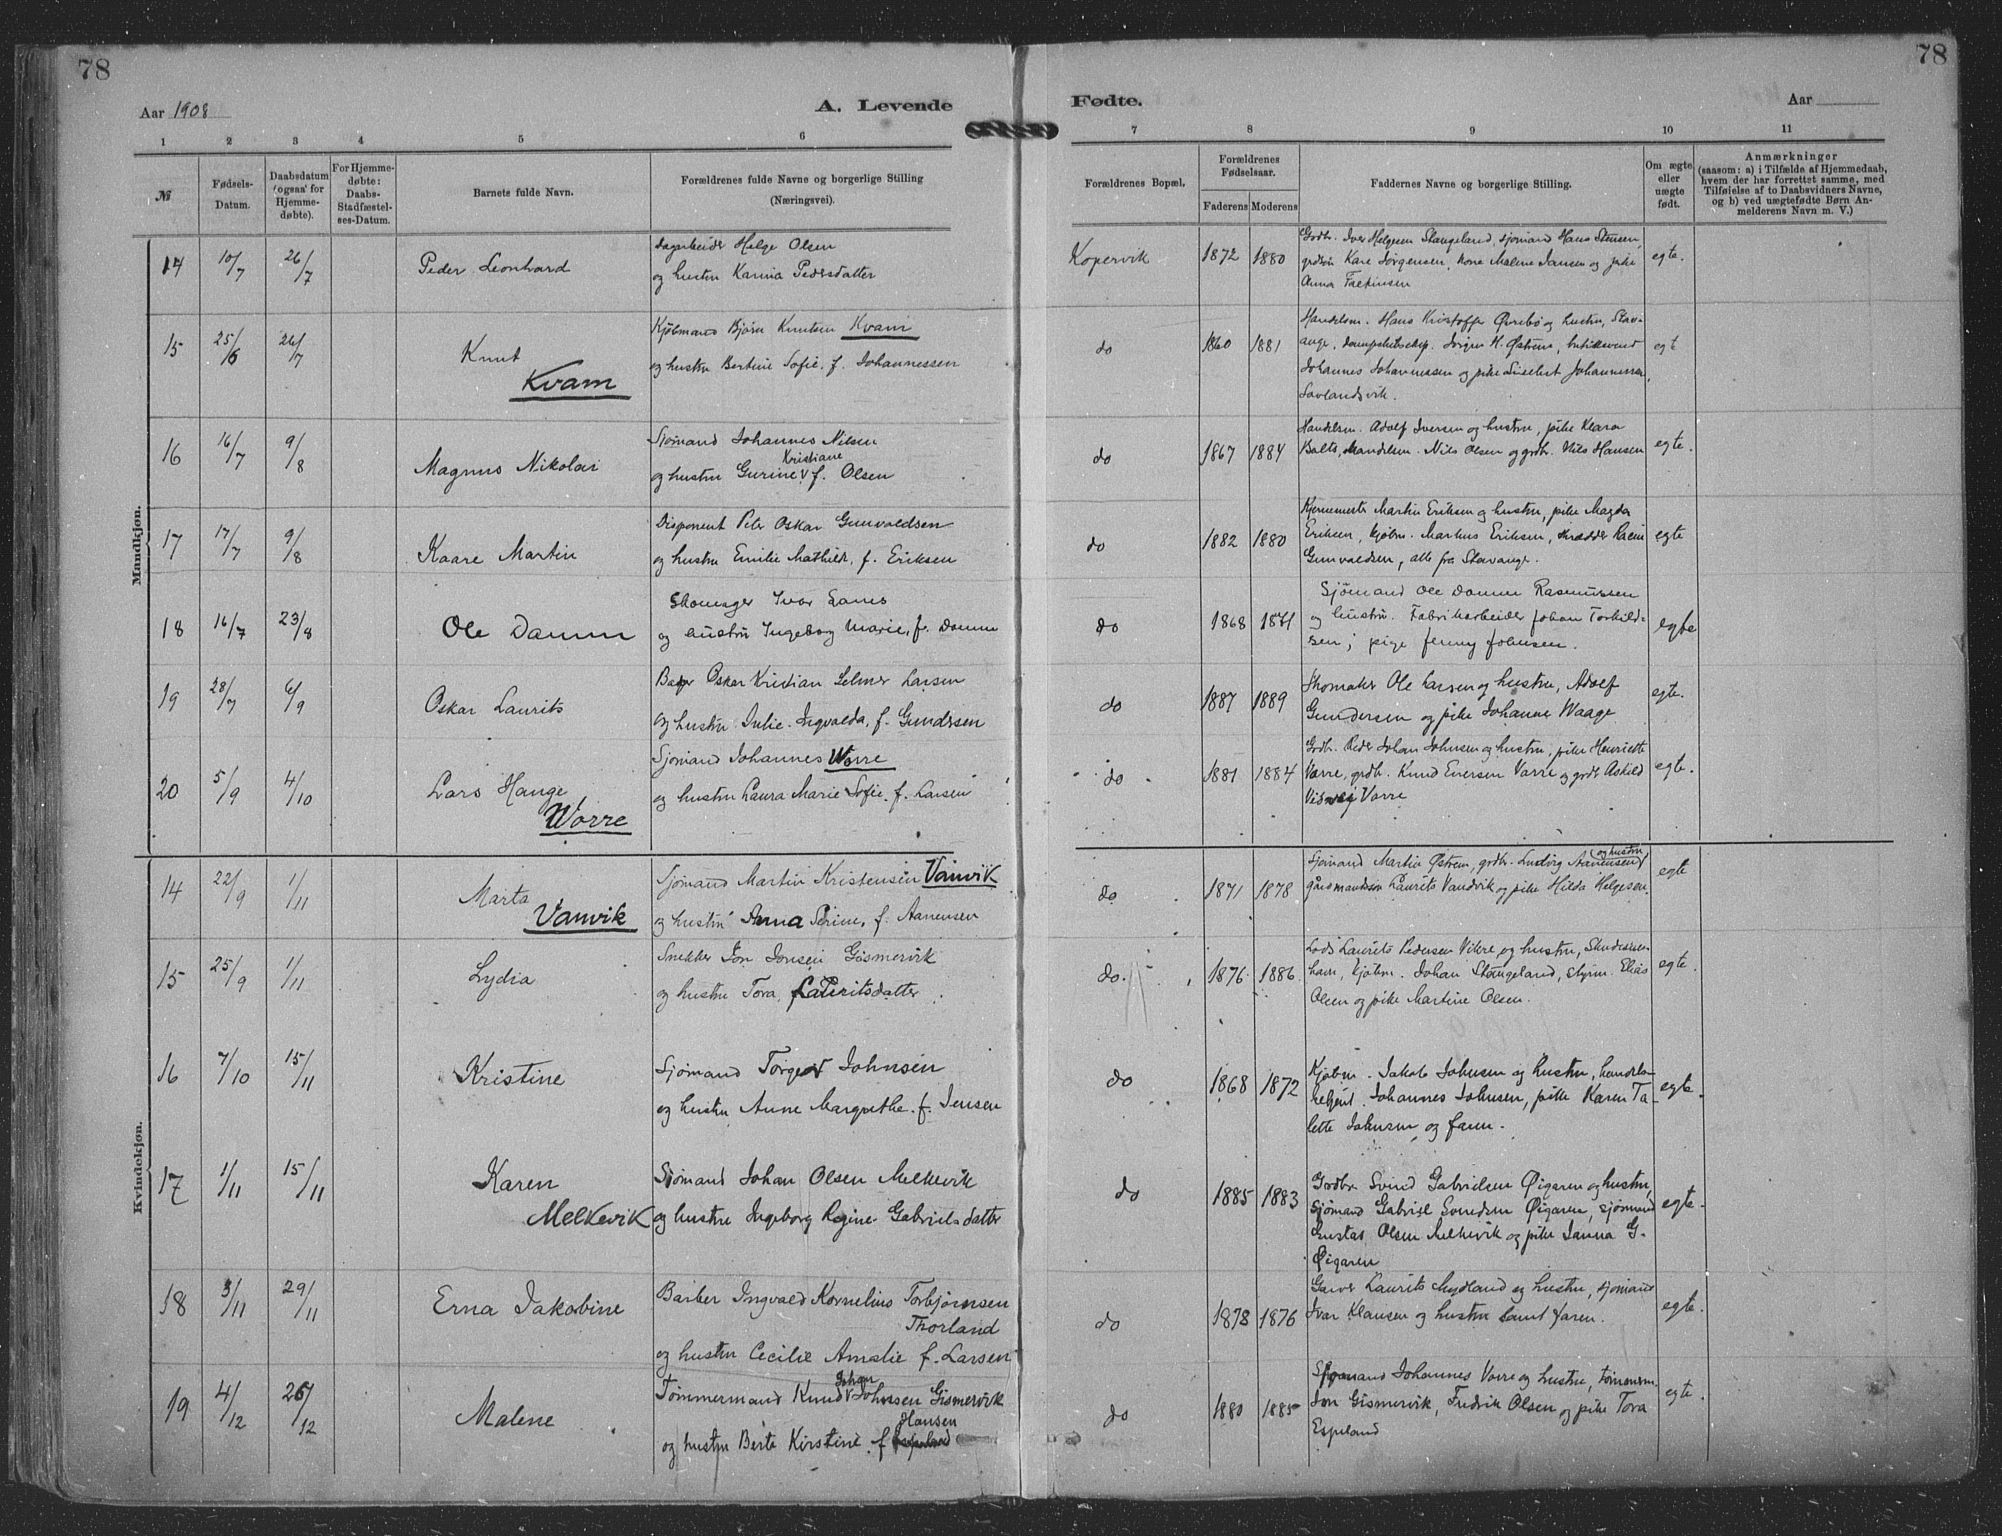 78
78
Aar 1908
A. Levende
Fødte.
Aar
1 2 3 4 5 6 7 8 9 10 11
№
Fødsels-
Datum.
Daabsdatum
(ogsaa for
Hjemme-
døbte).
For Hjemme-
døbte:
Daabs-
Stadfæstel-
ses-Datum.
Barnets fulde Navn.
Forældrenes fulde Navne og borgerlige Stilling
(Næringsvei).
Forældrenes Bopæl.
Forældrenes
Fødselsaar.
Faderens Moderens
Faddernes Navne og borgerlige Stilling.
Om ægte
eller
uægte
født.
Anmærkninger
(saasom: a) i Tilfælde af Hjemmedaab,
hvem der har forrettet samme, med
Tilføielse af to Daabsvidners Navne,
og b) ved uægtefødte Børn An-
melderens Navn m. V.)
Mandkjøn.
14 10/7 26/7 Peder Leonhard
Dagarbeider Helge Olsen
og hustru Karina Pedersdatter
Kopervik 1872 1880
Grdbr. Iver Helgesen Stangeland, sjømand Hans Stensen,
Kare Jørgensen, kone Malene Jansen og pike
Anna
egte.
15 25/6 26/7 Knut
Kvam
Kjøbmand Bjørn Knutsen Kvam
og hustru Bertine Sofie, f. Johannessen
do 1860 1881
Handelsm. Hans Kristoffer Øvrebø og hustru, Stav-
anger, dampskibseksp. Jørgen H. Østrem, butiksvend
Johannes Johannessen og pike Johannessen
Sævlandsvik.
egte
16 16/7 9/8 Magnus Nikolai
Sjømand Johannes Nilsen
Kristiane
og hustru Gurine f. Olsen
do 1867 1884
Handelsm. Adolf Iversen og hustru, pike Klara
Handelsm. Nils Olsen og grdbr. Nils Hansen
egte.
17 17/7 9/8 Kaare Martin
Disponent Peter Oskar Gunvaldsen
og hustru Emilie Mathilde, f. Eriksen
do 1882 1880
Martin Eriksen og hustru, pike Magda
Eriksen, kjøbm. Markus Eriksen, skrædder
Gunvaldsen, alle fra Stavanger.
egte
18 16/7 23/8 Ole Damm
Skomager Ivar
og hustru Ingeborg Marie, f. Damm
do 1868 1871
Sjømand Ole Damm Rasmussen
og hustru. Fabrikarbeider Johan Torkild-
sen; pige Jenny Johnsen.
egte
19 28/7 6/9 Oskar Laurits
Bager Oskar Kristian Selmer Larsen
og hustru Julie Ingvalda, f. Gundersen
do 1887 1889
Skomaker Ole Larsen og hustru, Adolf
Gundersen og pike Johanne Waage
egte.
20 5/9 4/10 Lars Hauge
Worre
Sjømand Johannes Worre
og hustru Laura Marie Sofie, f. Larsen
do 1881 1884
Grdbr. Peder Johan Johnsen og hustru, pike Henriette
Varre, grdbr. Knud Eversen Varre og grdbr Askild
Varre
egte.
Kvindekjøn.
14 22/9 1/11 Marta
Vanvik
Sjømand Martin Kristensen Vanvik
og hustru Anna Serine, f. Aanensen
do 1871 1878
og hustru
Sjømand Martin Østrem, grdbr. Ludvig Aanensen
gårdmandssøn Laurits Vandvik og pike Hilda Helgesen.
egte
15 25/9 1/11 Lydia
Snekker Jon Jonsen Gismervik
og hustru Tora, f. Lauritsdatter
do. 1876 1886
Lods Laurits Pedersen Vikre og hustru, Skudesnes-
havn, kjøbm. Johan Stangeland, styrm. Elias
Olsen og pike Martine Olsen.
egte.
16 7/10 15/11 Kristine
Sjømand Torger Johnsen
og hustru Anne Margrethe f. Jensen
do 1868 1872
Kjøbm. Jakob Johnsen og hustru, handels-
betjent Johannes Johnsen, pike Karen Ta-
lette Johnsen og faren.
egte.
17 1/11 15/11 Karen
Melkevik
Sjømand Johan Olsen Melkevik
og hustru Ingeborg Regine Gabrielsdatter
do 1885 1883
Grdbr Svend Gabrielsen Øigaren og hustru,
sjømand Gabriel Svendsen Øigaren, sjømand
Gustav Olsen Melkevik og pike Janna G.
Øigaren
egte.
18 3/11 29/11 Erna Jakobine
Barber Ingvald Kornelius Torbjørnsen
Thorland
og hustru Cecilie Amalie f. Larsen
do 1878 1876
Garver Laurits Mydland og hustru, sjømand
Ivar Klausen og hustru samt faren.
egte.
19 4/12 26/12 Malene
Johan
Tømmermand Knud Johnsen Gismervik
Hansen
og hustru Berte Kirstine f.
do 1880 1885
Sjømand Johannes Varre og hustru, tømmerm.
Jon Gismervik, Fredrik Olsen og pike Tora
Espeland
egte.